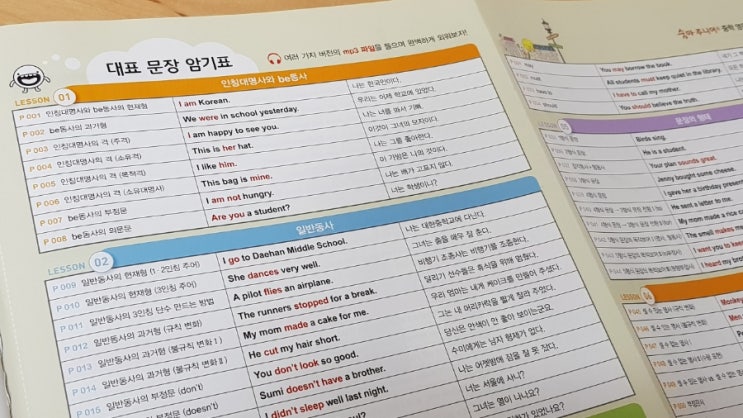 대표 문장 암기표
여러 가지 버전의 mp3 파일을 들으며 완벽하게 외워보자!
LESSON 01 인칭대명사와 be동사
P 001 인칭대명사와 be동사의 현재형 I am Korean. 나는 한국인이다.
P 002 be동사의 과거형 We were in school yesterday. 우리는 어제 학교에 있었다.
P 003 인칭대명사의 격 (주격) I am happy to see you. 나는 너를 봐서 기뻐.
P 004 인칭대명사의 격 (소유격) This is her hat. 이것이 그녀의 모자이다.
P 005 인칭대명사의 격 (목적격) I like him. 나는 그를 좋아한다.
P 006 인칭대명사의 격 (소유대명사) This bag is mine. 이 가방은 나의 것이다.
P 007 be동사의 부정문 I am not hungry. 나는 배가 고프지 않다.
P 008 be동사의 의문문 Are you a student? 너는 학생이니?
LESSON 02 일반동사
P 009 일반동사의 현재형 (1·2인칭 주어) I go to Daehan Middle School. 나는 대한중학교에 다닌다.
P 010 일반동사의 현재형 (3인칭 주어) She dances very well. 그녀는 춤을 매우 잘 춘다.
P 011 일반동사의 3인칭 단수 만드는 방법 A pilot flies an airplane. 비행기 조종사는 비행기를 조종한다.
P 012 일반동사의 과거형 (규칙 변화) The runners stopped for a break. 달리기 선수들은 휴식을 위해 멈췄다.
P 013 일반동사의 과거형 (불규칙 변화 I) My mom made a cake for me. 우리 엄마는 내게 케이크를 만들어 주셨다.
P 014 일반동사의 과거형 (불규칙 변화 II) He cut my hair short. 그는 내 머리카락을 짧게 잘라 주었다.
P 015 일반동사의 부정문 (don't) You don't look so good. 당신은 안색이 안 좋아 보이는군요.
일반동사의 부정문 (doesn't) Sumi doesn't have a brother. 수미에게는 남자 형제가 없다.
I didn't sleep well last night. 나는 어젯밤에 잠을 잘 못 잤다.
나는 서울에 사니?
You may borrow the book.
All students must keep quiet in the library.
I have to call my mother.
You should believe the truth.
문장의 형태
Birds sing.
He is a student.
Your plan sounds great.
Jenny bought some cheese.
I give her a birthday present
He sent a letter to me.
My mom made a nice
The smell makes me
I want you to keep
I heard my brother